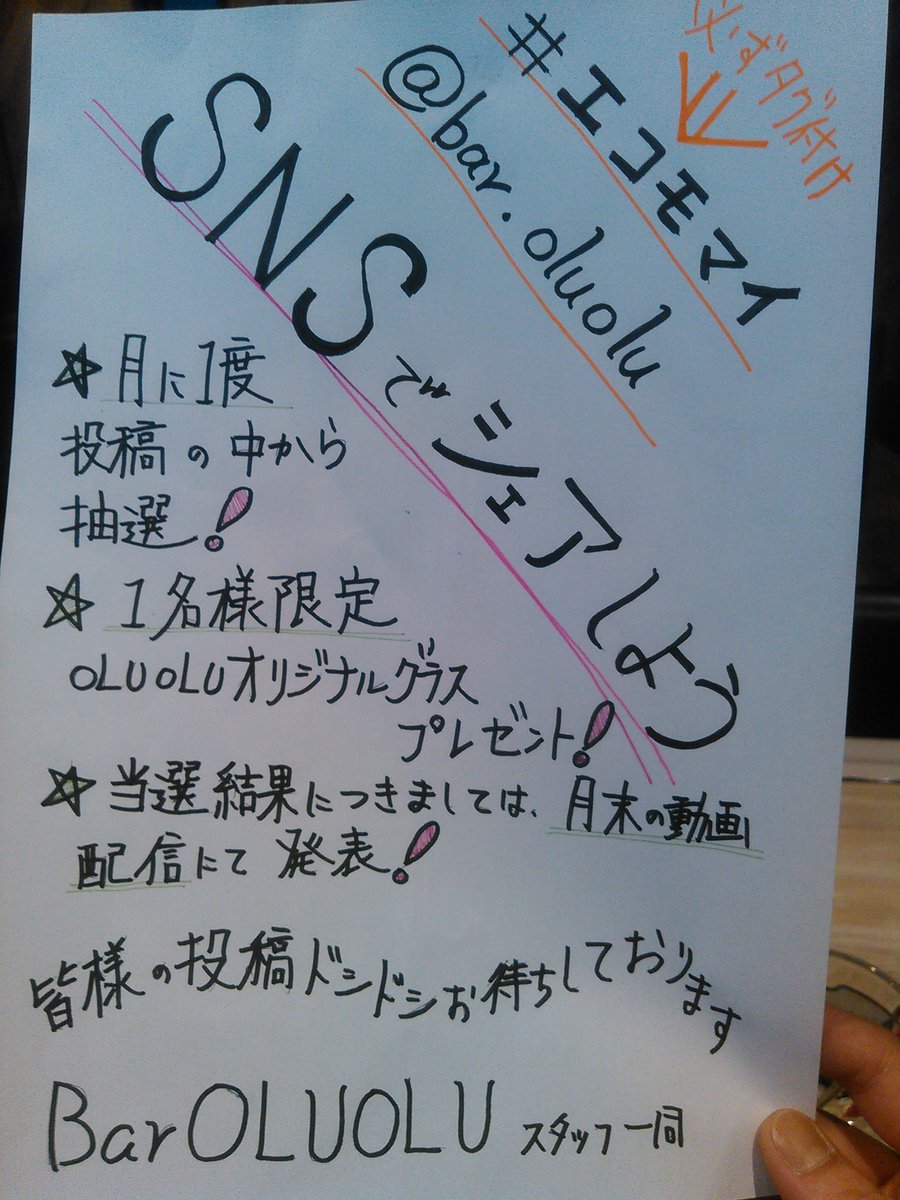 必ずタグ付け
#エコモマイ
@bar.oluolu
SNSでシェアしよう
☆月に1度
投稿の中から
抽選!
☆1名様限定
OLUOLUオリジナルグラス
プレゼント!
☆当選結果につきましては、月末の動画
配信にて発表!
皆様の投稿ドシドシお待ちしております
Bar OLUOLU スタッフ一同